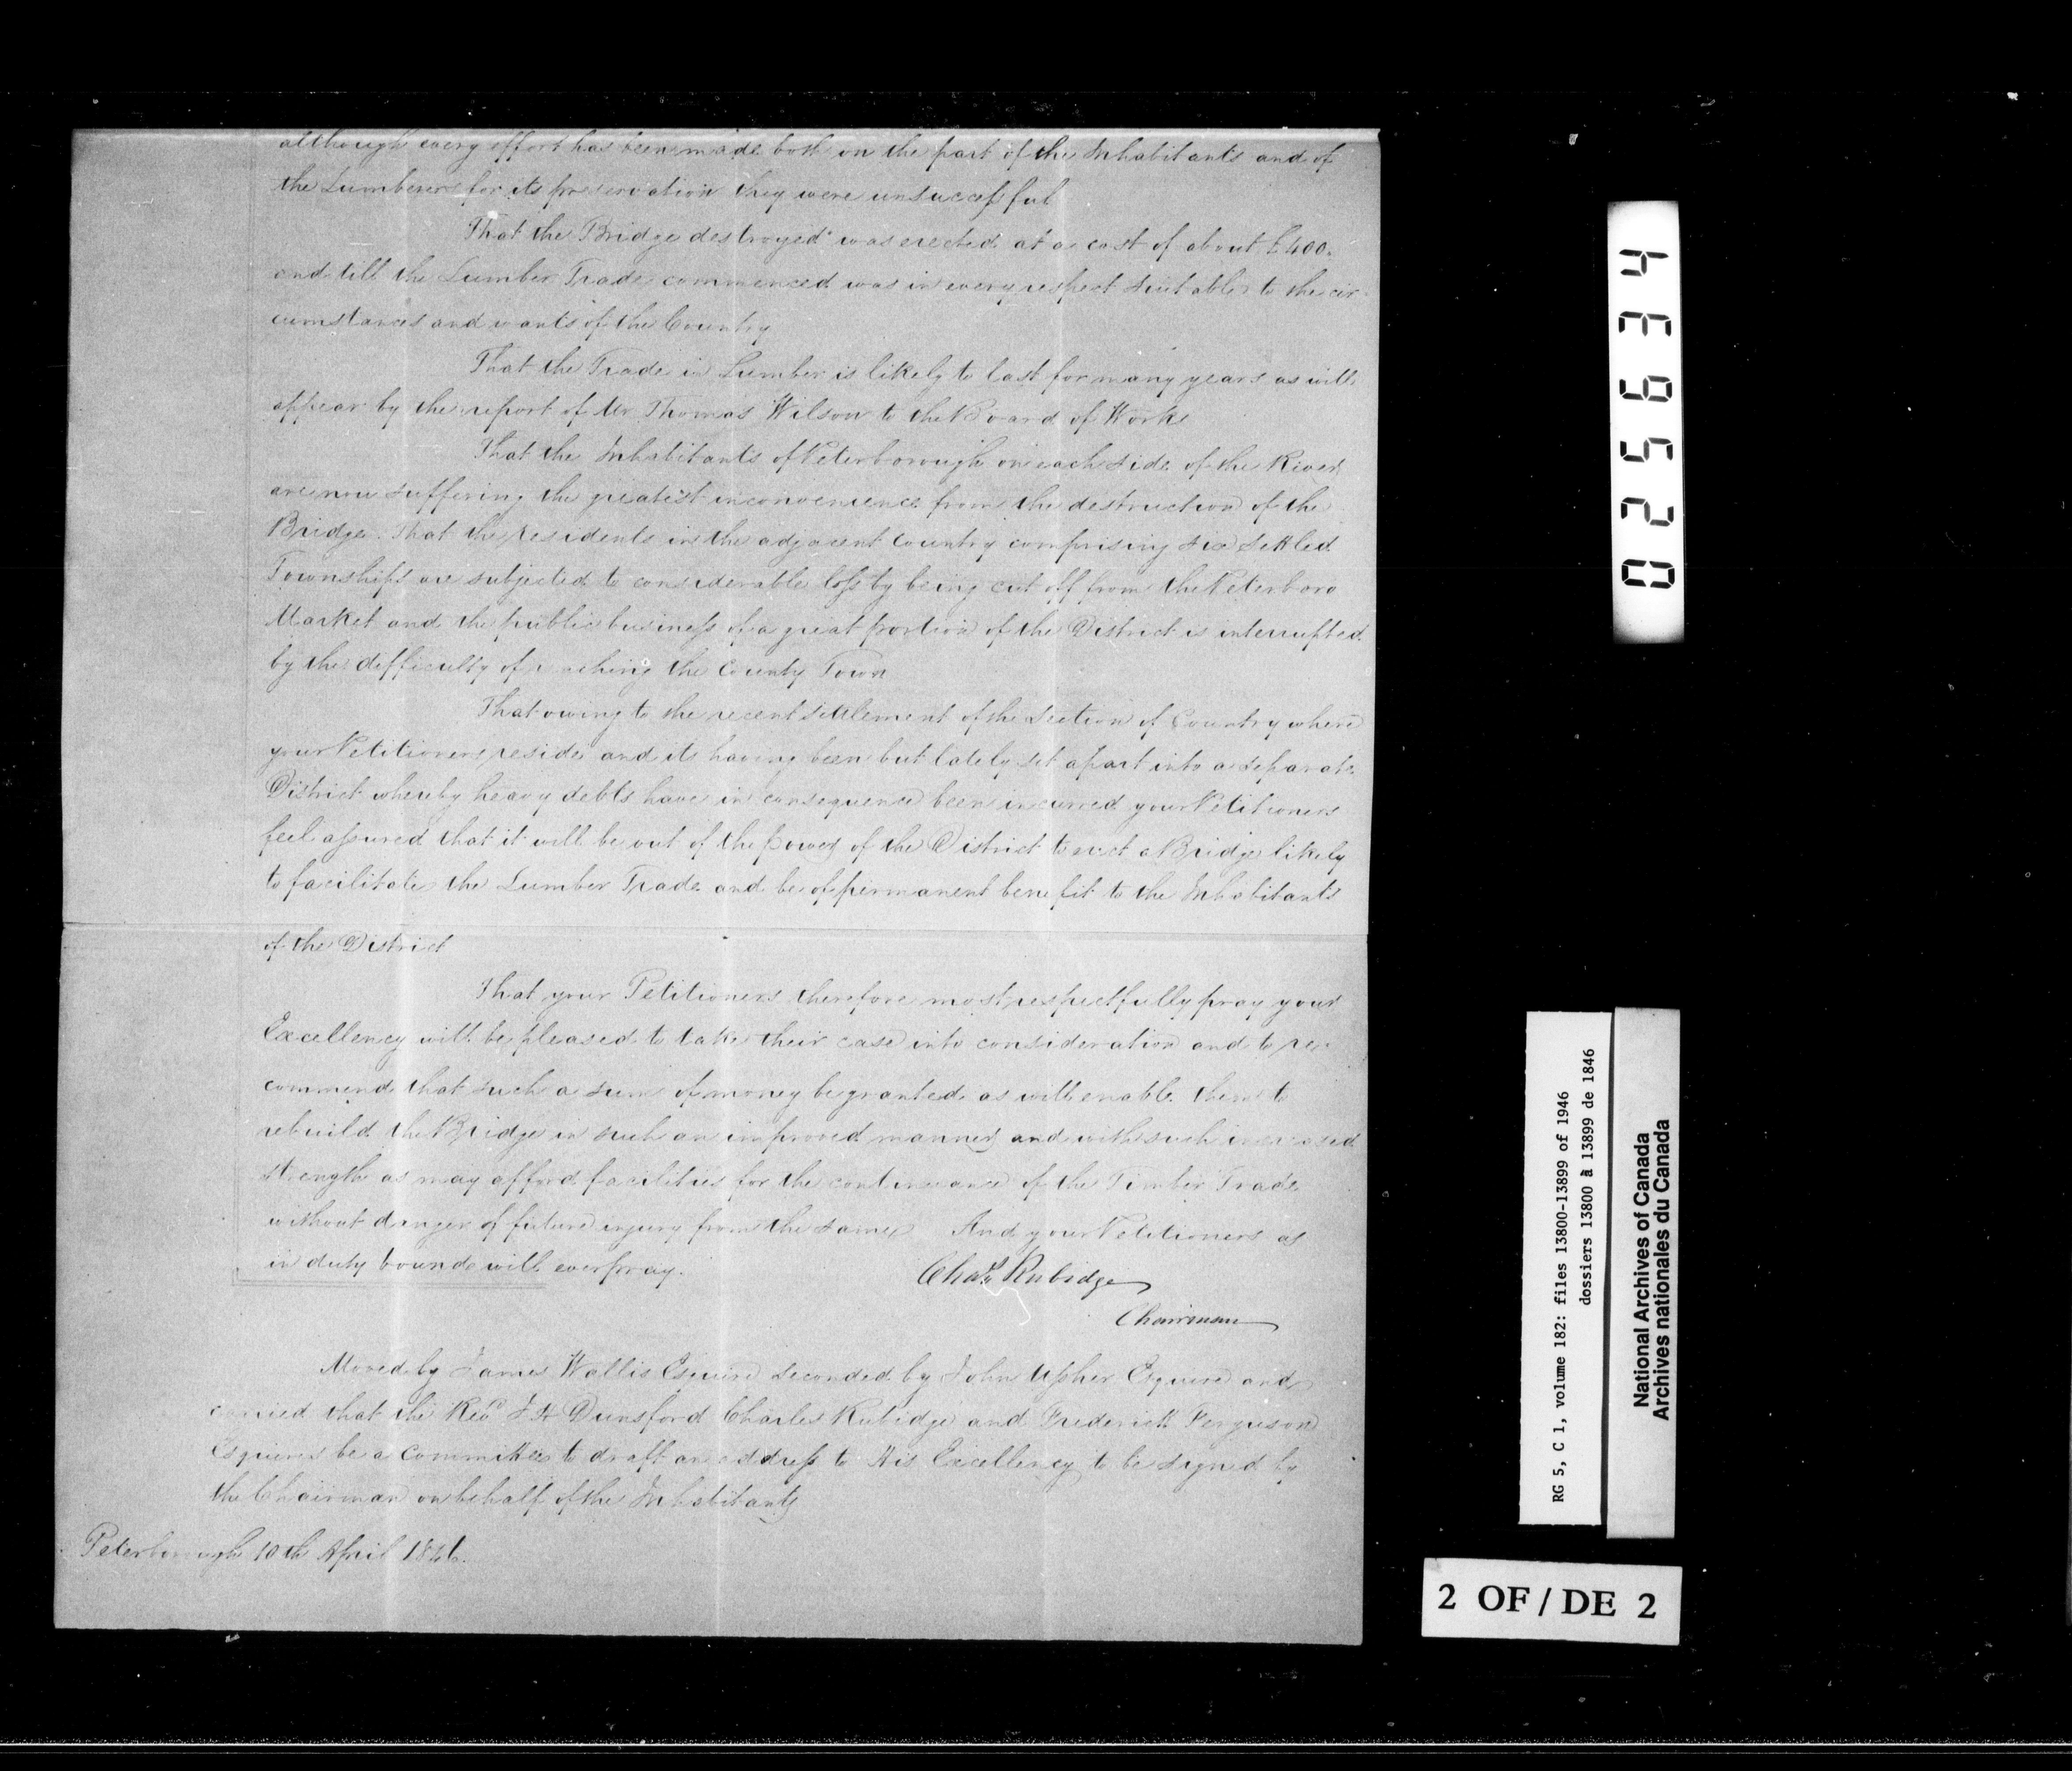 although every effort has been made both on the part of the Inhabitants and of
the Lumberers for its preservation they were unsuccessful
That the Bridge destroyed was erected at a cost of about £400.
and till the Lumber Trade commenced was in every respect suitable to the cir-
cumstances and wants of the Country
That the Trade in Lumber is likely to last for many years as will
appear by the report of Mr Thomas Wilson to the Board of Works
That the Inhabitants of Peterborough on each side of the River
are now suffering the greatest inconvenience from the destruction of the
Bridge. That the residents in the adjacent Country comprising six settled
Townships are subjected to considerable loss by being cut off from the Peterboro
Market and the public business of a great portion of the District is interrupted
by the difficulty of reaching the County Town
That owing to the recent settlement of the section of Country where
your Petitioners reside and its having been but lately set apart into a separate
District whereby heavy debts have in consequence been incurred your Petitioners
feel assured that it will be out of the power of the District to erect a Bridge likely
to facilitate the Lumber Trade and be of permanent benefit to the Inhabitants
of the District
That your Petitioners therefore most respectfully pray your
Excellency will be pleased to take their case into consideration and to re-
commend that such a sum of money be granted as will enable them to
rebuild the Bridge in such an improved manner and with such increased
strength as may afford facilities for the continuance of the Timber Trade
without danger of future injury from the same. And your Petitioners as
in duty bound will ever pray.
Chas. Rubidge
Chairman
Moved by James Wallis Esquire seconded by John Usher Esquire and
carried that the Revd J H Dunsford Charles Rubidge and Frederick Ferguson
Esquires be a Committee to draft an address to His Excellency to be signed by
the Chairman on behalf of the Inhabitants
Peterborough 10th April 1846.
025634
RG 5, C 1, volume 182: files 13800-13899 of 1946
dossiers 13800 à 13899 de 1846
National Archives of Canada
Archives nationales du Canada
2 OF/DE 2